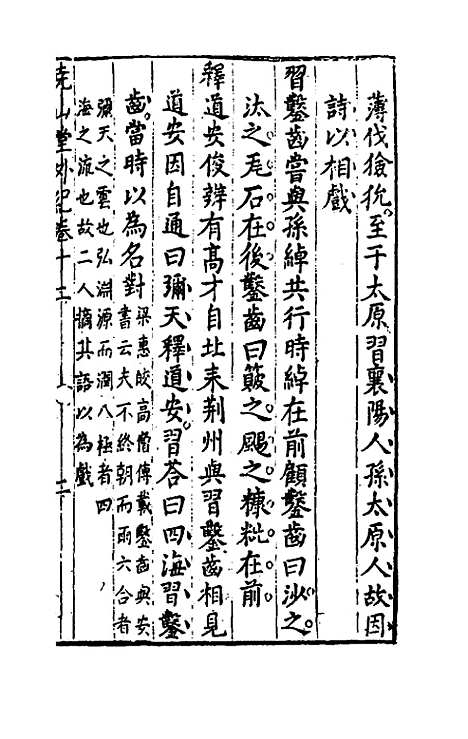 薄伐獫狁至于太原習襄陽人孫太原人故因
詩以相戲
習鑿齒嘗與孫綽共行時綽在前顧鑿齒曰沙之
汰之瓦石在後鑿齒曰簸之颺之糠粃在前
釋道安俊辯有高才自北来荆州與習鑿齒相見
道安因自通曰彌天釋道安習荅曰四海習鑿
齒當時以為名對
梁惠皎高僧傳載鑿齒與安
書云夫不終朝而雨六合者
彌天之雲也弘淵源而潤八極者四
海之流也故二人摘其語以為戲
堯山堂外紀卷十二